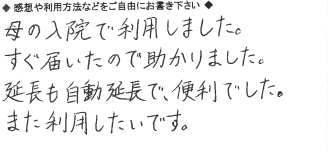 ◆ 感想や利用方法などをご自由にお書き下さい ◆
母の入院で利用しました。
すぐ届いたので助かりました。
延長も自動延長で、便利でした。
また利用したいです。